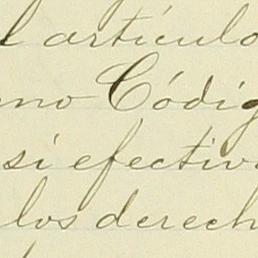 l artículo
mo Códig
si efectiv
los derech